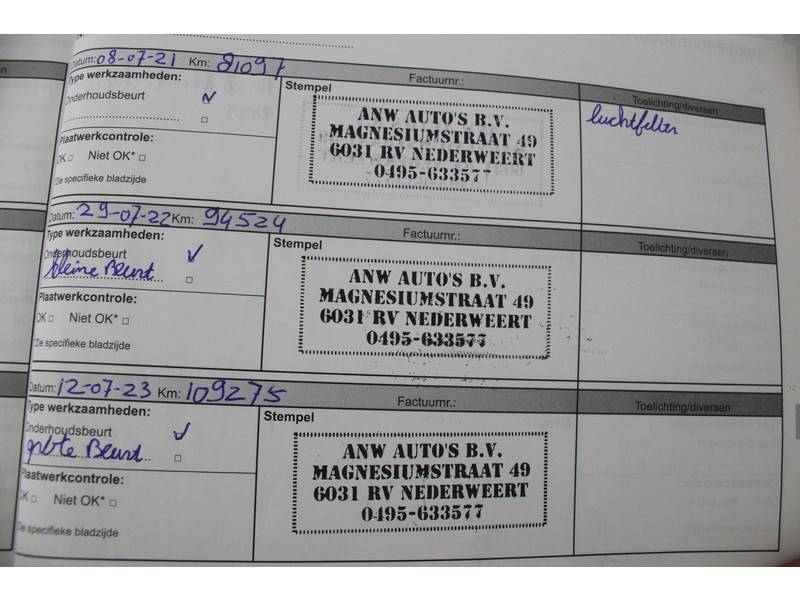 Datum: 08-07-21 Km: 81097 Factuurnr.:
Type werkzaamheden:
Onderhoudsbeurt
Plaatwerkcontrole:
OK Niet OK*
Zie specifieke bladzijde
Stempel
ANW AUTO'S B.V.
MAGNESIUMSTRAAT 49
6031 RV NEDERWEERT
0495-633577
Toelichting/diversen
luchtfilter
Datum: 29-07-22 Km: 94524 Factuurnr.:
Type werkzaamheden:
Onderhoudsbeurt
kleine Beurt
Plaatwerkcontrole:
OK Niet OK*
Zie specifieke bladzijde
Stempel
ANW AUTO'S B.V.
MAGNESIUMSTRAAT 49
6031 RV NEDERWEERT
0495-633577
Toelichting/diversen
Datum: 12-07-23 Km: 109275 Factuurnr.:
Type werkzaamheden:
Onderhoudsbeurt
grote Beurt
Plaatwerkcontrole:
OK Niet OK*
Zie specifieke bladzijde
Stempel
ANW AUTO'S B.V.
MAGNESIUMSTRAAT 49
6031 RV NEDERWEERT
0495-633577
Toelichting/diversen